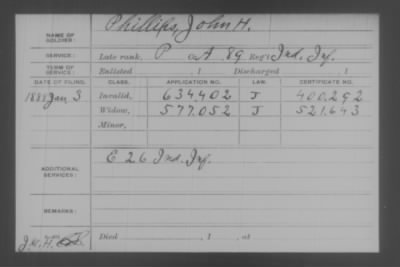 NAME OF SOLDIER: Phillips, John H.
SERVICE: Late rank, P Co. A, 89 Reg't Ind. Inf.
TERM OF SERVICE: Enlisted , 1 Discharged , 1
DATE OF FILING. CLASS. APPLICATION NO. LAW. CERTIFICATE NO.
1888 Jan. 3 Invalid, 634,402 J 400,292
Widow, 577,052 J 521,643
Minor,
ADDITIONAL SERVICES: E 26 Ind. Inf.
REMARKS:
J.W.H. Died , 1 , at